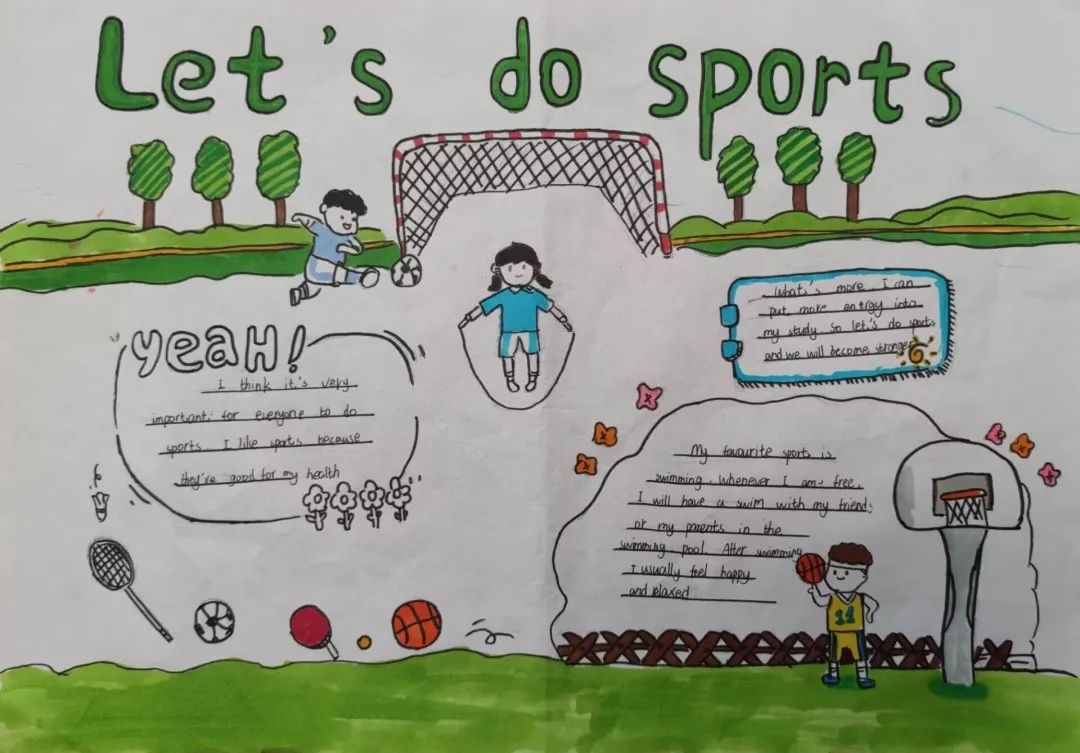 Let's do sports
yeaH!
I think it's very
important for everyone to do
sports. I like sports because
they're good for my health
What's more I can
put more energy into
my study So let's do sports
and we will become stronger
My favourite sports is
swimming. Whenever I am free,
I will have a swim with my friends
or my parents in the
swimming pool. After swimming
I usually feel happy
and relaxed
11